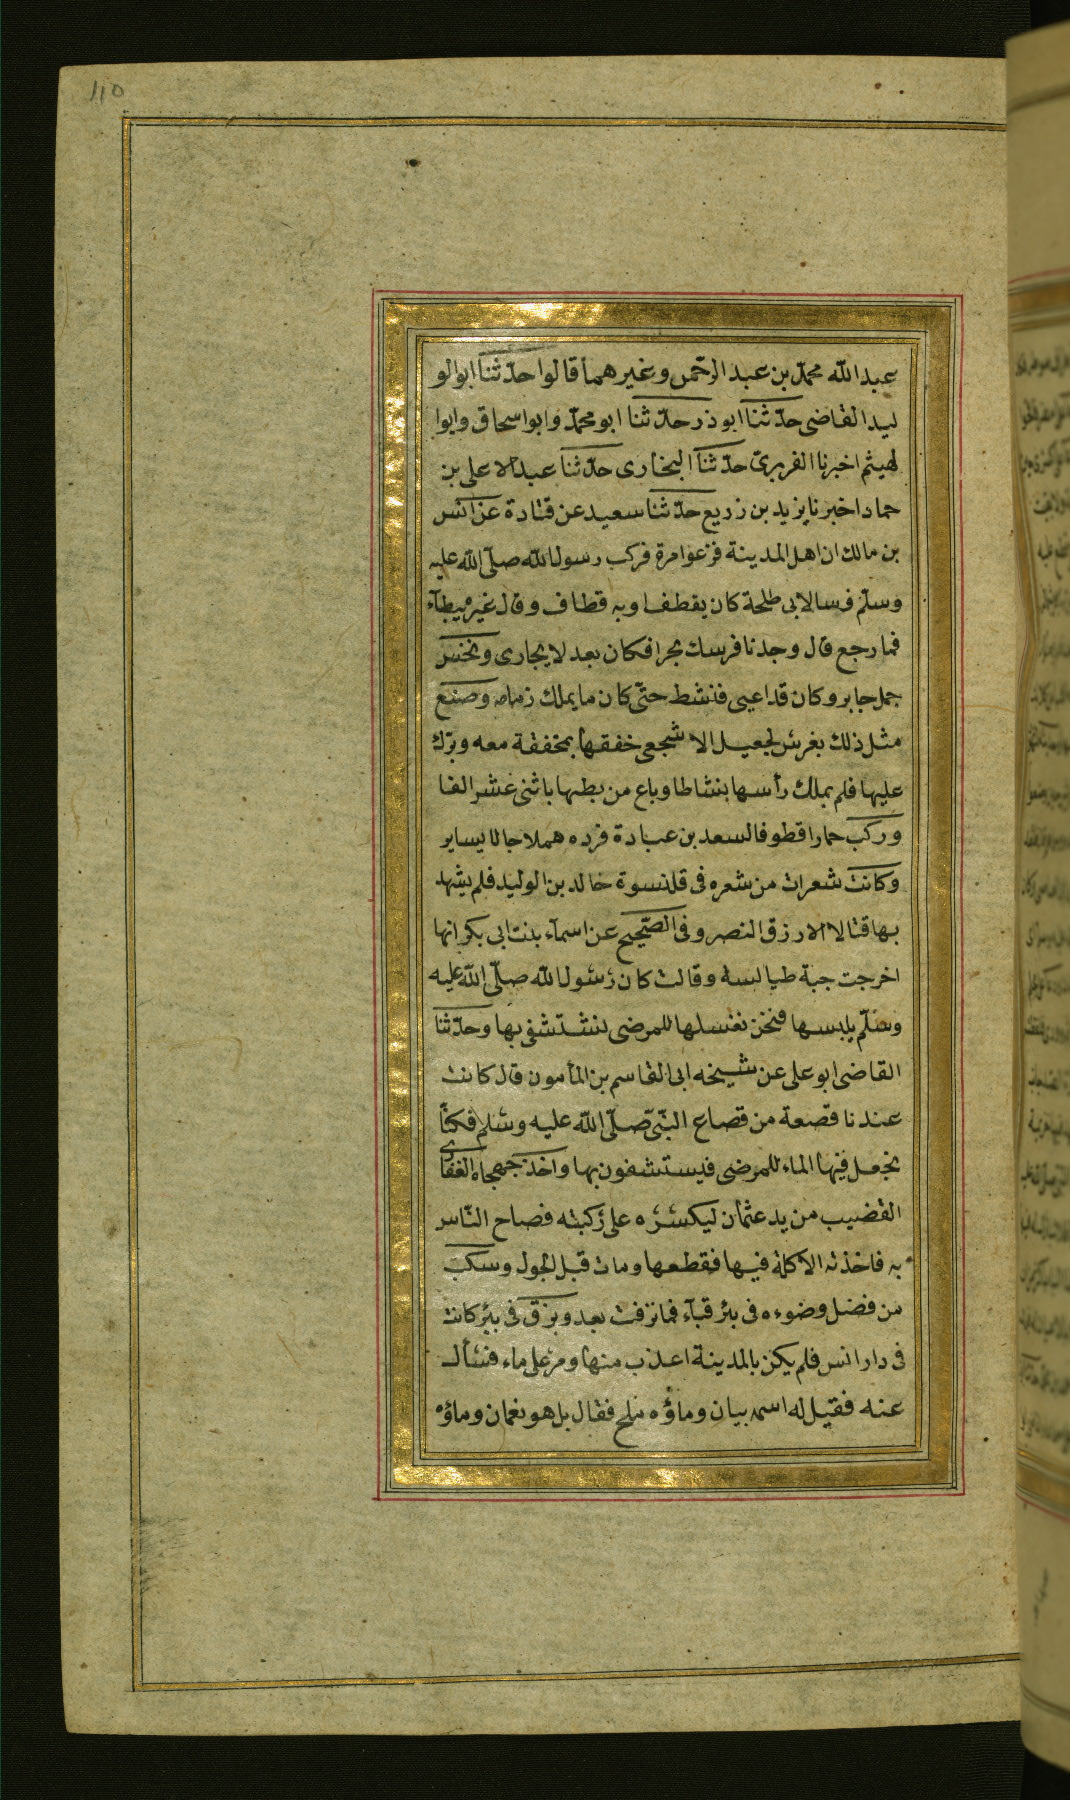 110
عبد الله محمّد بن عبد الرّحمن وغيرهما قالوا حدّثنا ابوالو
ليد القاضى حدّثنا ابو ذر حدّثنا ابو محمّد وابو اسحاق وابوا
لهيثم اخبرنا الفربرىّ حدّثنا البخارى حدّثنا عبد الاعلى بن
حماد اخبرنا يزيد بن زريع حدّثنا سعيد عن قتادة عن انس
بن مالك ان اهل المدينة فزعوا مرة فركب رسول الله صلّى الله عليه
وسلّم فرسا لابى طلحة كان يقطف اوبه قطاف وقال غيره يبطآء
فما رجع قال وجدنا فرسك بحرا فكان بعد لا يجارى ونخس
جمل جابر وكان قد اعيى فنشط حتّى كان ما يملك زمامه وصنع
مثل ذلك بفرس لجعيل الاشجعى خفقها بمخفقة معه وبرّك
عليها فلم يملك رأسها نشاطا وباع من بطنها باثنى عشر الفا
وركب حمارا قطوفا لسعد بن عبادة فرده هملاجا لا يساير
وكانت شعرات من شعره فى قلنسوة خالد بن الوليد فلم يشهد
بها قتالا الا رزق النصر وفى الصّحيح عن اسمآء بنت ابى بكر انها
اخرجت جبة طيالسة وقالت كان رسول الله صلّى الله عليه
وسلّم يلبسها فنحن نغسلها للمرضى نستشفى بها وحدّثنا
القاضى ابو على عن شيخه ابى القاسم بن المأمون قال كانت
عندنا قصعة من قصاع النّبىّ صلّى الله عليه وسلم فكنّا
نجعل فيها الماء للمرضى فيستشفون بها واخذ جهجاه الغفارى
القضيب من يد عثمان ليكسره على ركبته فصاح النّاس
به فاخذته الاكلة فيها فقطعها ومات قبل الحول وسكب
من فضل وضوءه فى بئر قبآء فما نزفت بعد وبزق فى بئر كانت
فى دار انس فلم يكن بالمدينة اعذب منها ومر على ماء فسأل
عنه فقيل له اسمه بيسان وماؤه ملح فقال بل هو نعمان وماؤه